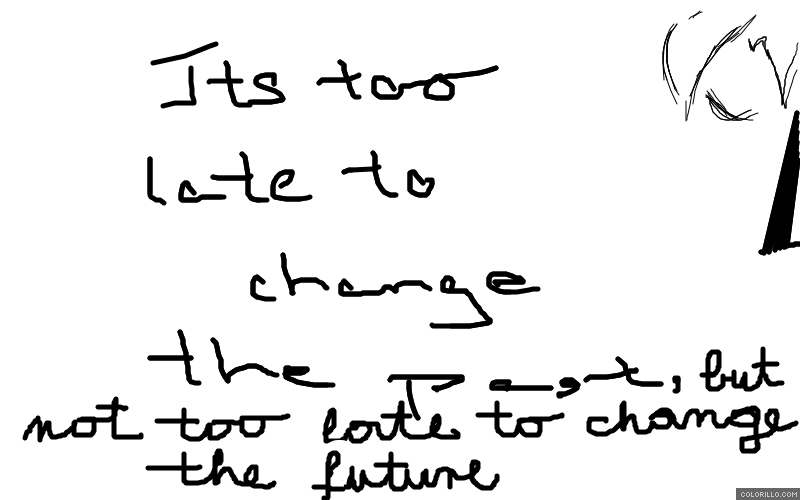 Its too
late to
change
the past, but
not too late to change
the future
COLORILLO.COM